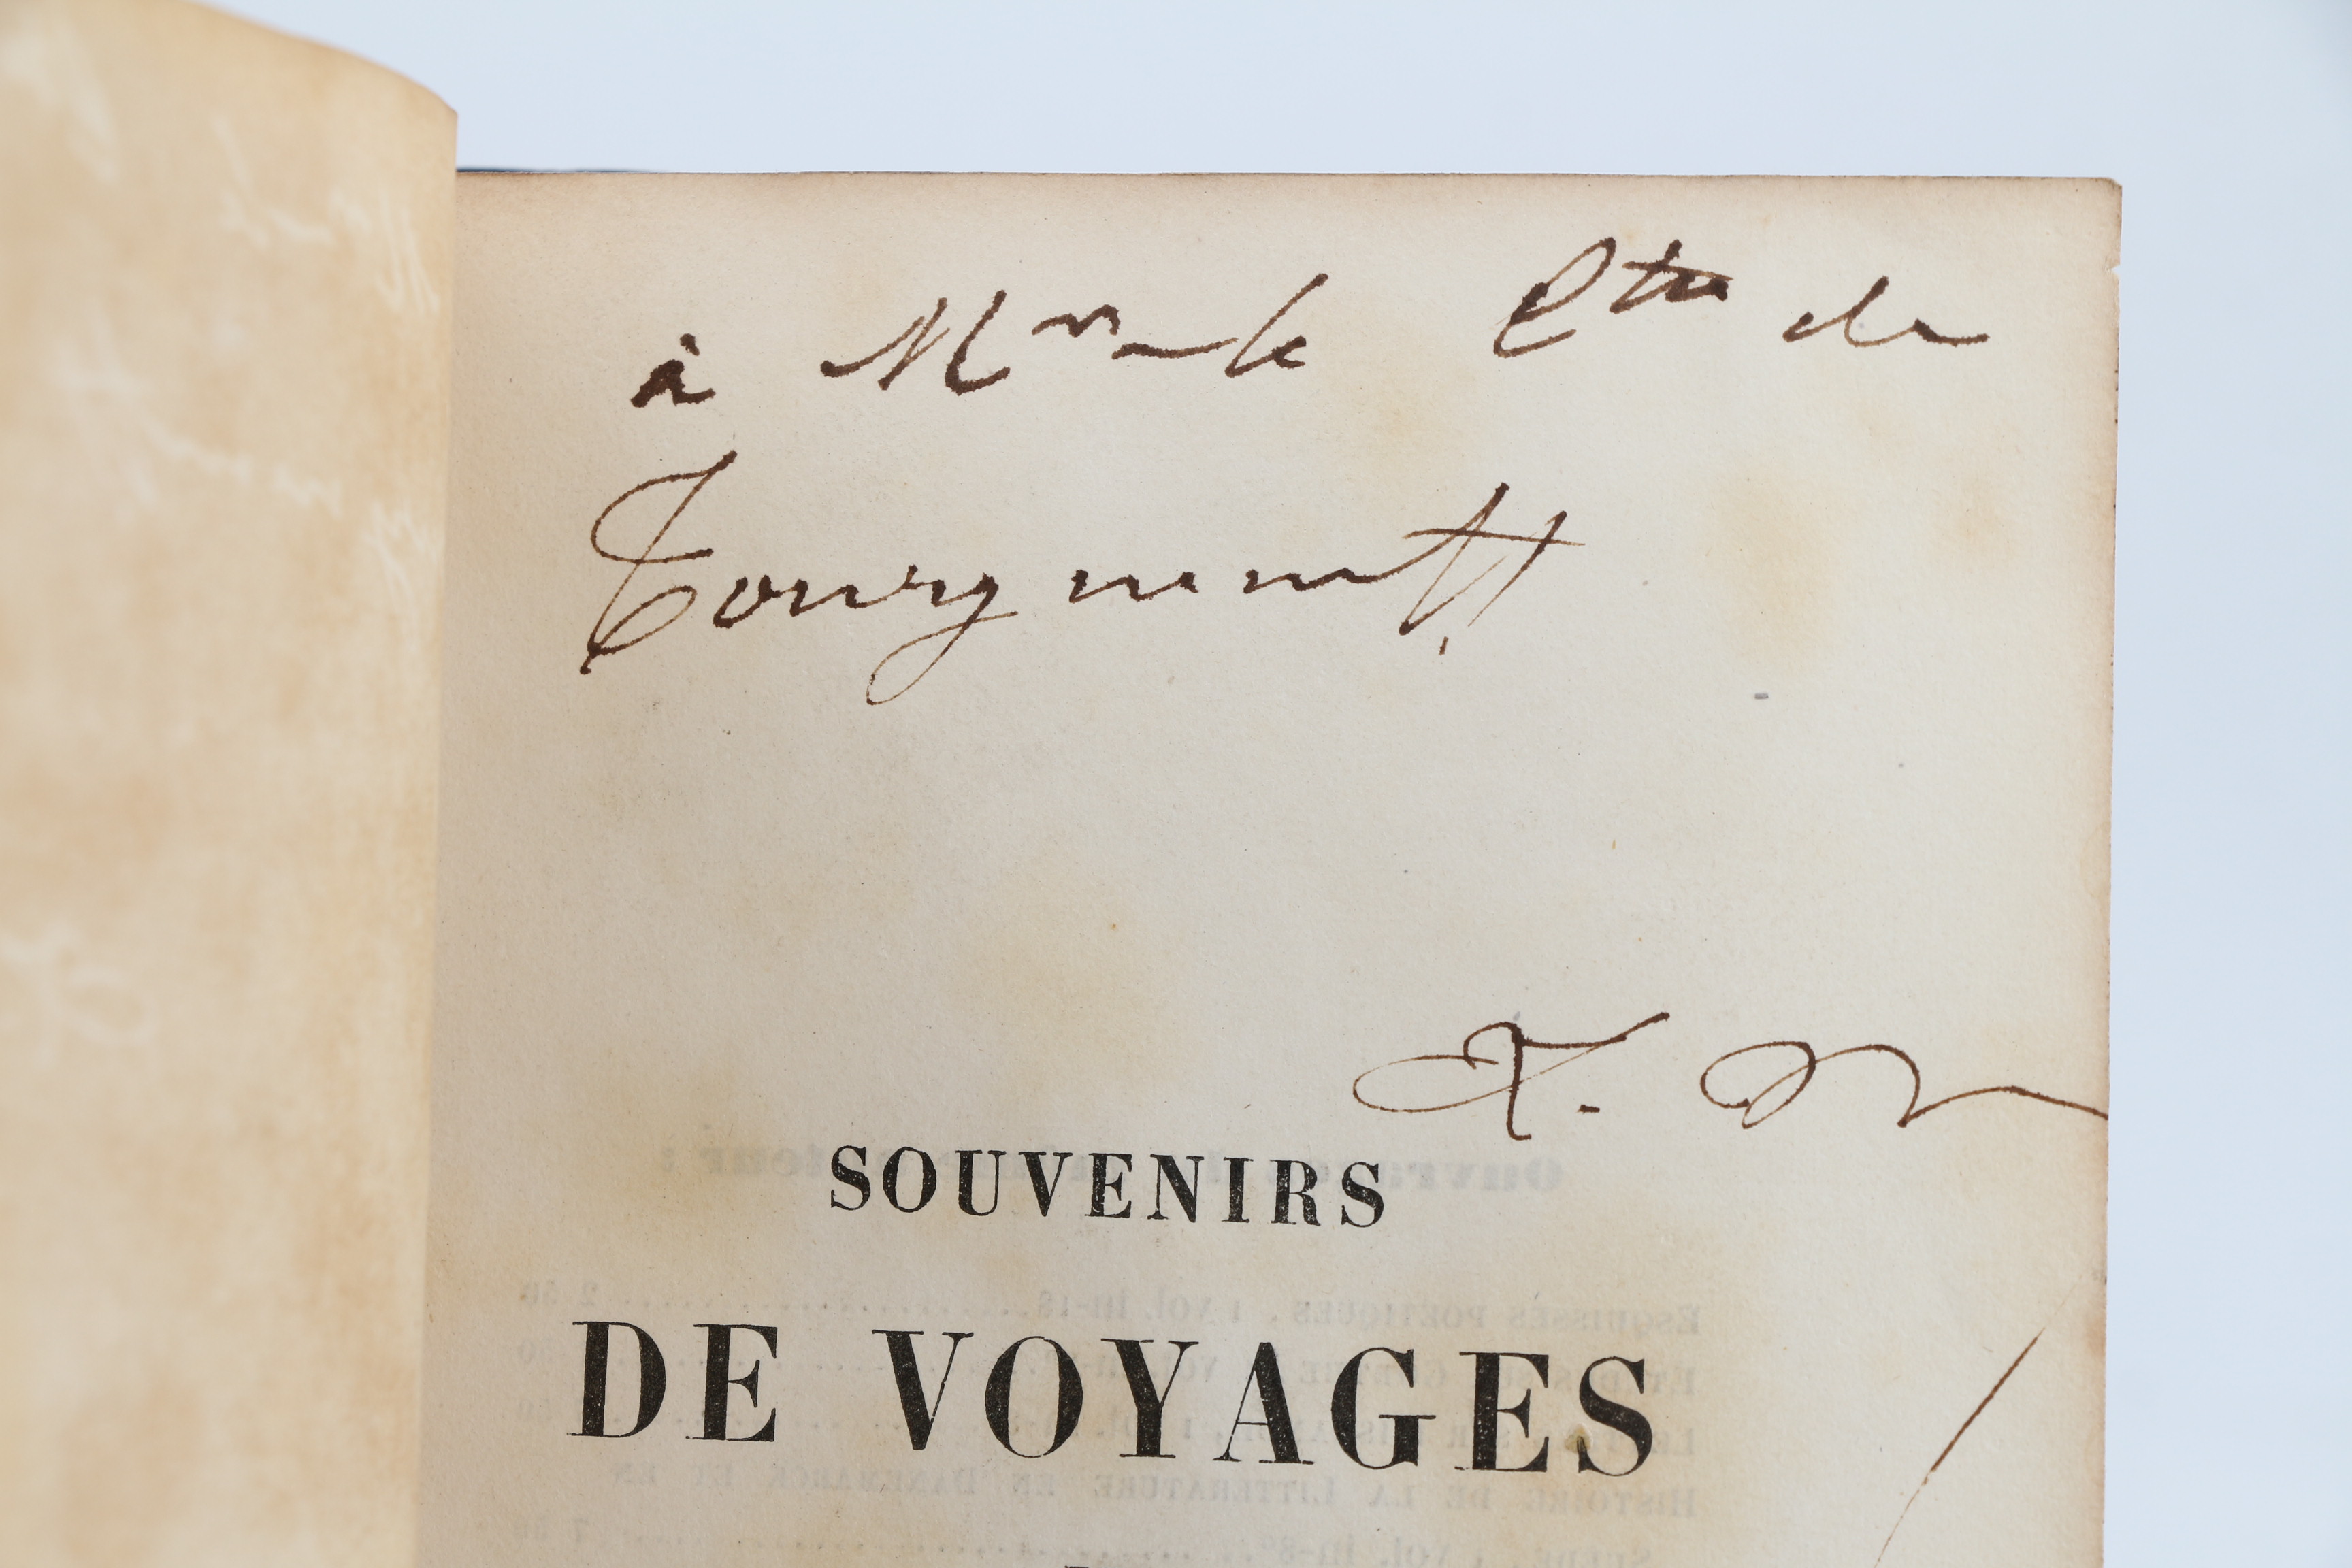 à Mr le Cte de
Tourgueneff
X. M
SOUVENIRS
DE VOYAGES